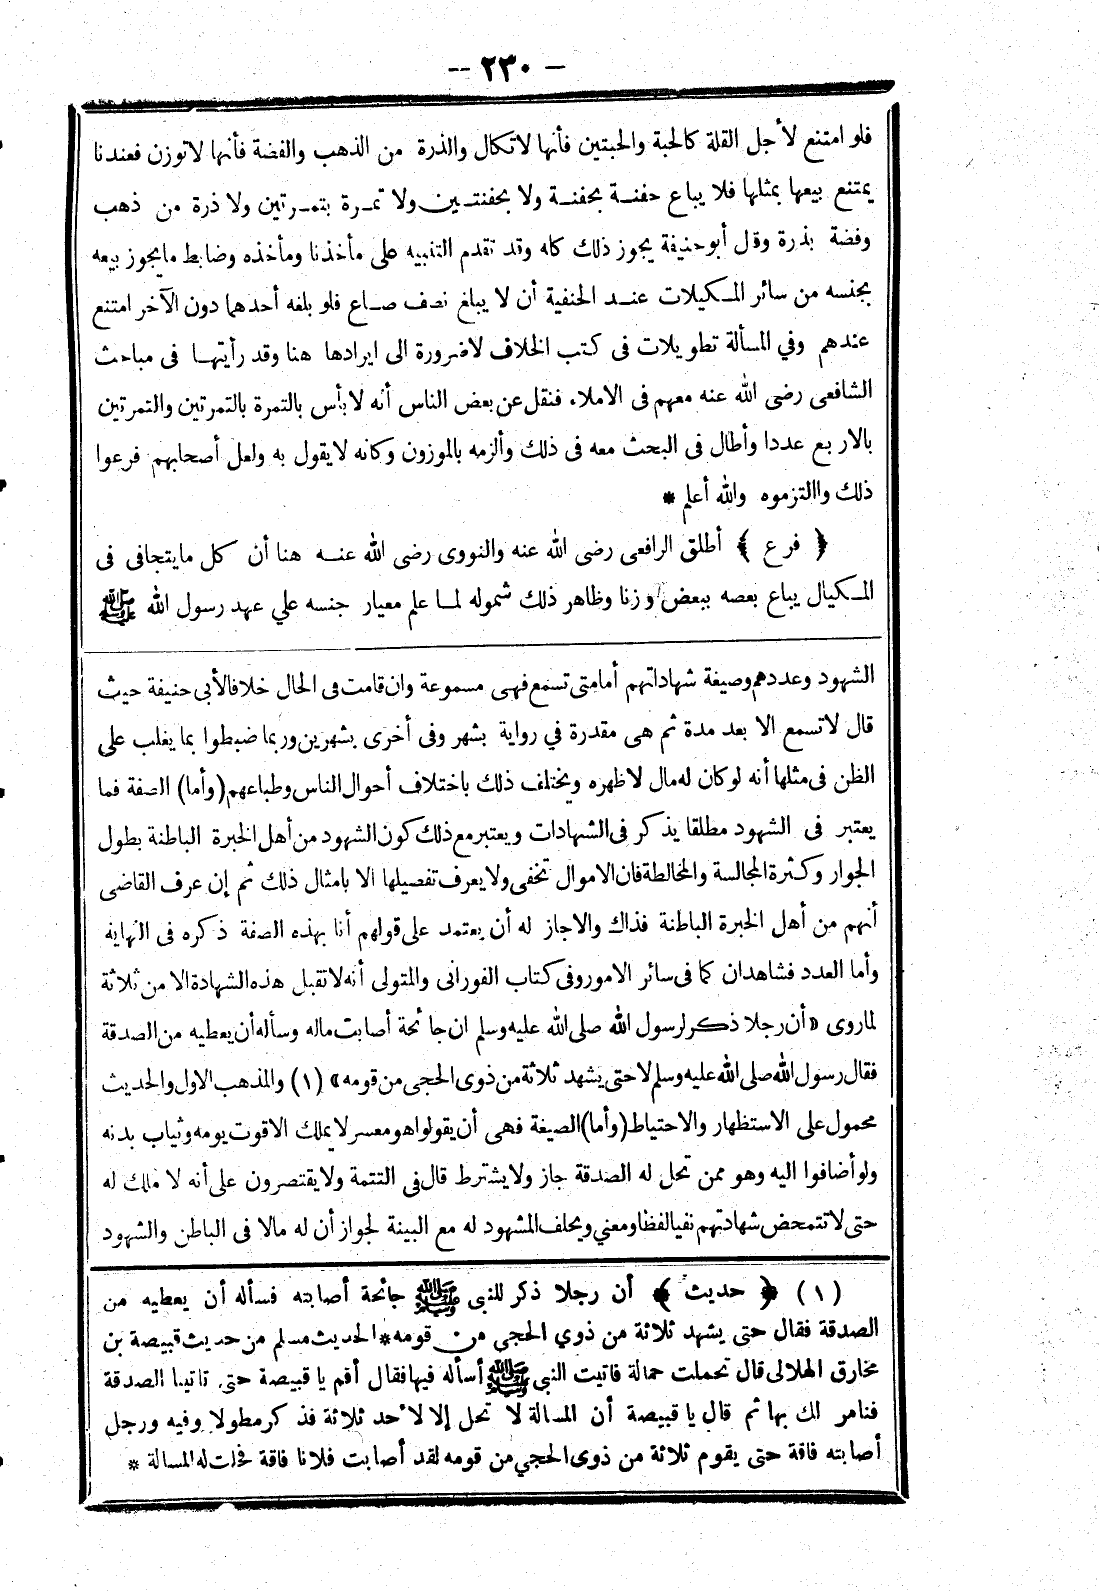 -- ٢٣٠ --
فلو امتنع لأجل القلة كالحبة والحبتين فأنها لاتكال والذرة من الذهب والفضة فأنها لاتوزن فعندنا
يمتنع بيعها بمثلها فلا يباع حفنة بحفنة ولا بحفنتين ولا تمرة بتمرتين ولا ذرة من ذهب
وفضة بذرة وقل أبوحنيفة يجوز ذلك كله وقد تقدم التنبيه على مأخذنا ومأخذه وضابط مايجوز بيعه
بجنسه من سائر المكيلات عند الحنفية أن لا يبلغ نصف صاع فلو بلغه أحدهما دون الآخر امتنع
عندهم وفي المسألة تطويلات فى كتب الخلاف لاضرورة الى ايرادها هنا وقد رأيتها فى مباحث
الشافعى رضى الله عنه معهم فى الاملاء فنقل عن بعض الناس أنه لابأس بالتمرة بالتمرتين والتمرتين
بالاربع عددا وأطال فى البحث معه فى ذلك وألزمه بالموزون وكانه لايقول به ولعل أصحابهم فرعوا
ذلك واالتزموه والله أعلم *
﴿ فرع ﴾ أطلق الرافعى رضى الله عنه والنووى رضى الله عنه هنا أن كل مايتجافى فى
المكيال يباع بعضه ببعض وزنا وظاهر ذلك شموله لما علم معيار جنسه علي عهد رسول الله ﷺ
الشهود وعددهم وصيغة شهاداتهم أمامتى تسمع فهى مسموعة وان قامت فى الحال خلافا لأبى حنيفة حيث
قال لاتسمع الا بعد مدة ثم هى مقدرة في رواية بشهر وفى أخرى بشهرين وربما ضبطوا بما يغلب على
الظن فى مثلها أنه لو كان له مال لاظهره ويختلف ذلك باختلاف أحوال الناس وطباعهم (وأما) الصفة فما
يعتبر فى الشهود مطلقا يذكر فى الشهادات ويعتبر مع ذلك كون الشهود من أهل الخبرة الباطنة بطول
الجوار وكثرة المجالسة والمخالطة فان الاموال تخفى ولا يعرف تفصيلها الا بامثال ذلك ثم إن عرف القاضى
أنهم من أهل الخبرة الباطنة فذاك والاجاز له أن يعتمد على قولهم أنا بهذه الصفة ذكره فى النهاية
وأما العدد فشاهدان كما فى سائر الامور وفى كتاب الفورانى والمتولى أنه لاتقبل هذه الشهادة الا من ثلاثة
لماروى «أن رجلا ذكر لرسول الله صلى الله عليه وسلم ان جائحة أصابت ماله وسأله أن يعطيه من الصدقة
فقال رسول الله صلى الله عليه وسلم لاحتى يشهد ثلاثة من ذوى الحجى من قومه» (١) والمذهب الاول والحديث
محمول على الاستظهار والاحتياط (وأما) الصيغة فهى أن يقولوا هو معسر لايملك الاقوت يومه وثياب بدنه
ولو أضافوا اليه وهو ممن تحل له الصدقة جاز ولايشترط قال فى التتمة ولايقتصرون على أنه لا ملك له
حتى لاتتمحض شهادتهم نفيا لفظا ومعني ويحلف المشهود له مع البينة لجواز أن له مالا فى الباطن والشهود
(١) ﴿ حديث ﴾ أن رجلا ذكر للنبى ﷺ جائحة أصابته فسأله أن يعطيه من
الصدقة فقال حتى يشهد ثلاثة من ذوي الحجى من قومه* الحديث مسلم من حديث قبيصة بن
مخارق الهلالى قال تحملت حمالة فاتيت النبى ﷺ أسأله فيها فقال أقم يا قبيصة حتى تاتينا الصدقة
فنامر لك بها ثم قال يا قبيصة أن المسالة لا تحل إلا لأحد ثلاثة فذكر مطولا وفيه ورجل
أصابته فاقة حتى يقوم ثلاثة من ذوى الحجي من قومه لقد أصابت فلانا فاقة فحلت له المسالة *